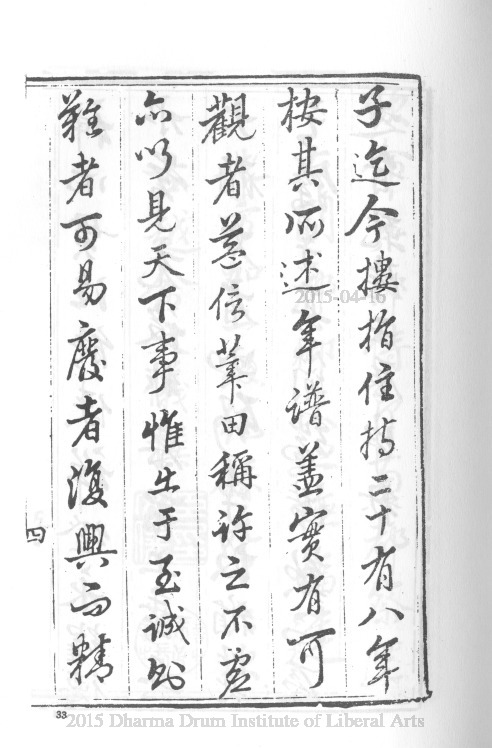 子迄今摟指住持二十有八年
按其所述年譜蓋實有可
觀者益信葦田稱许之不虛
亦以見天下事惟出于至誠則
難者可易廢者復興而精
四
33
2015-04-16
2015 Dharma Drum Institute of Liberal Arts